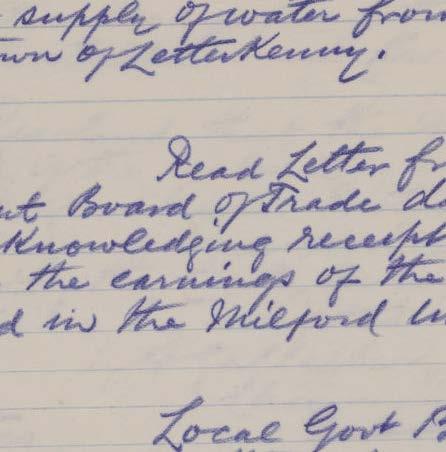 supply of water from
wn of Letterkenny.
Read Letter fr
ut Board of Trade da
knowledging receipt
the earnings of the
d in the Milford Un
Local Govt B